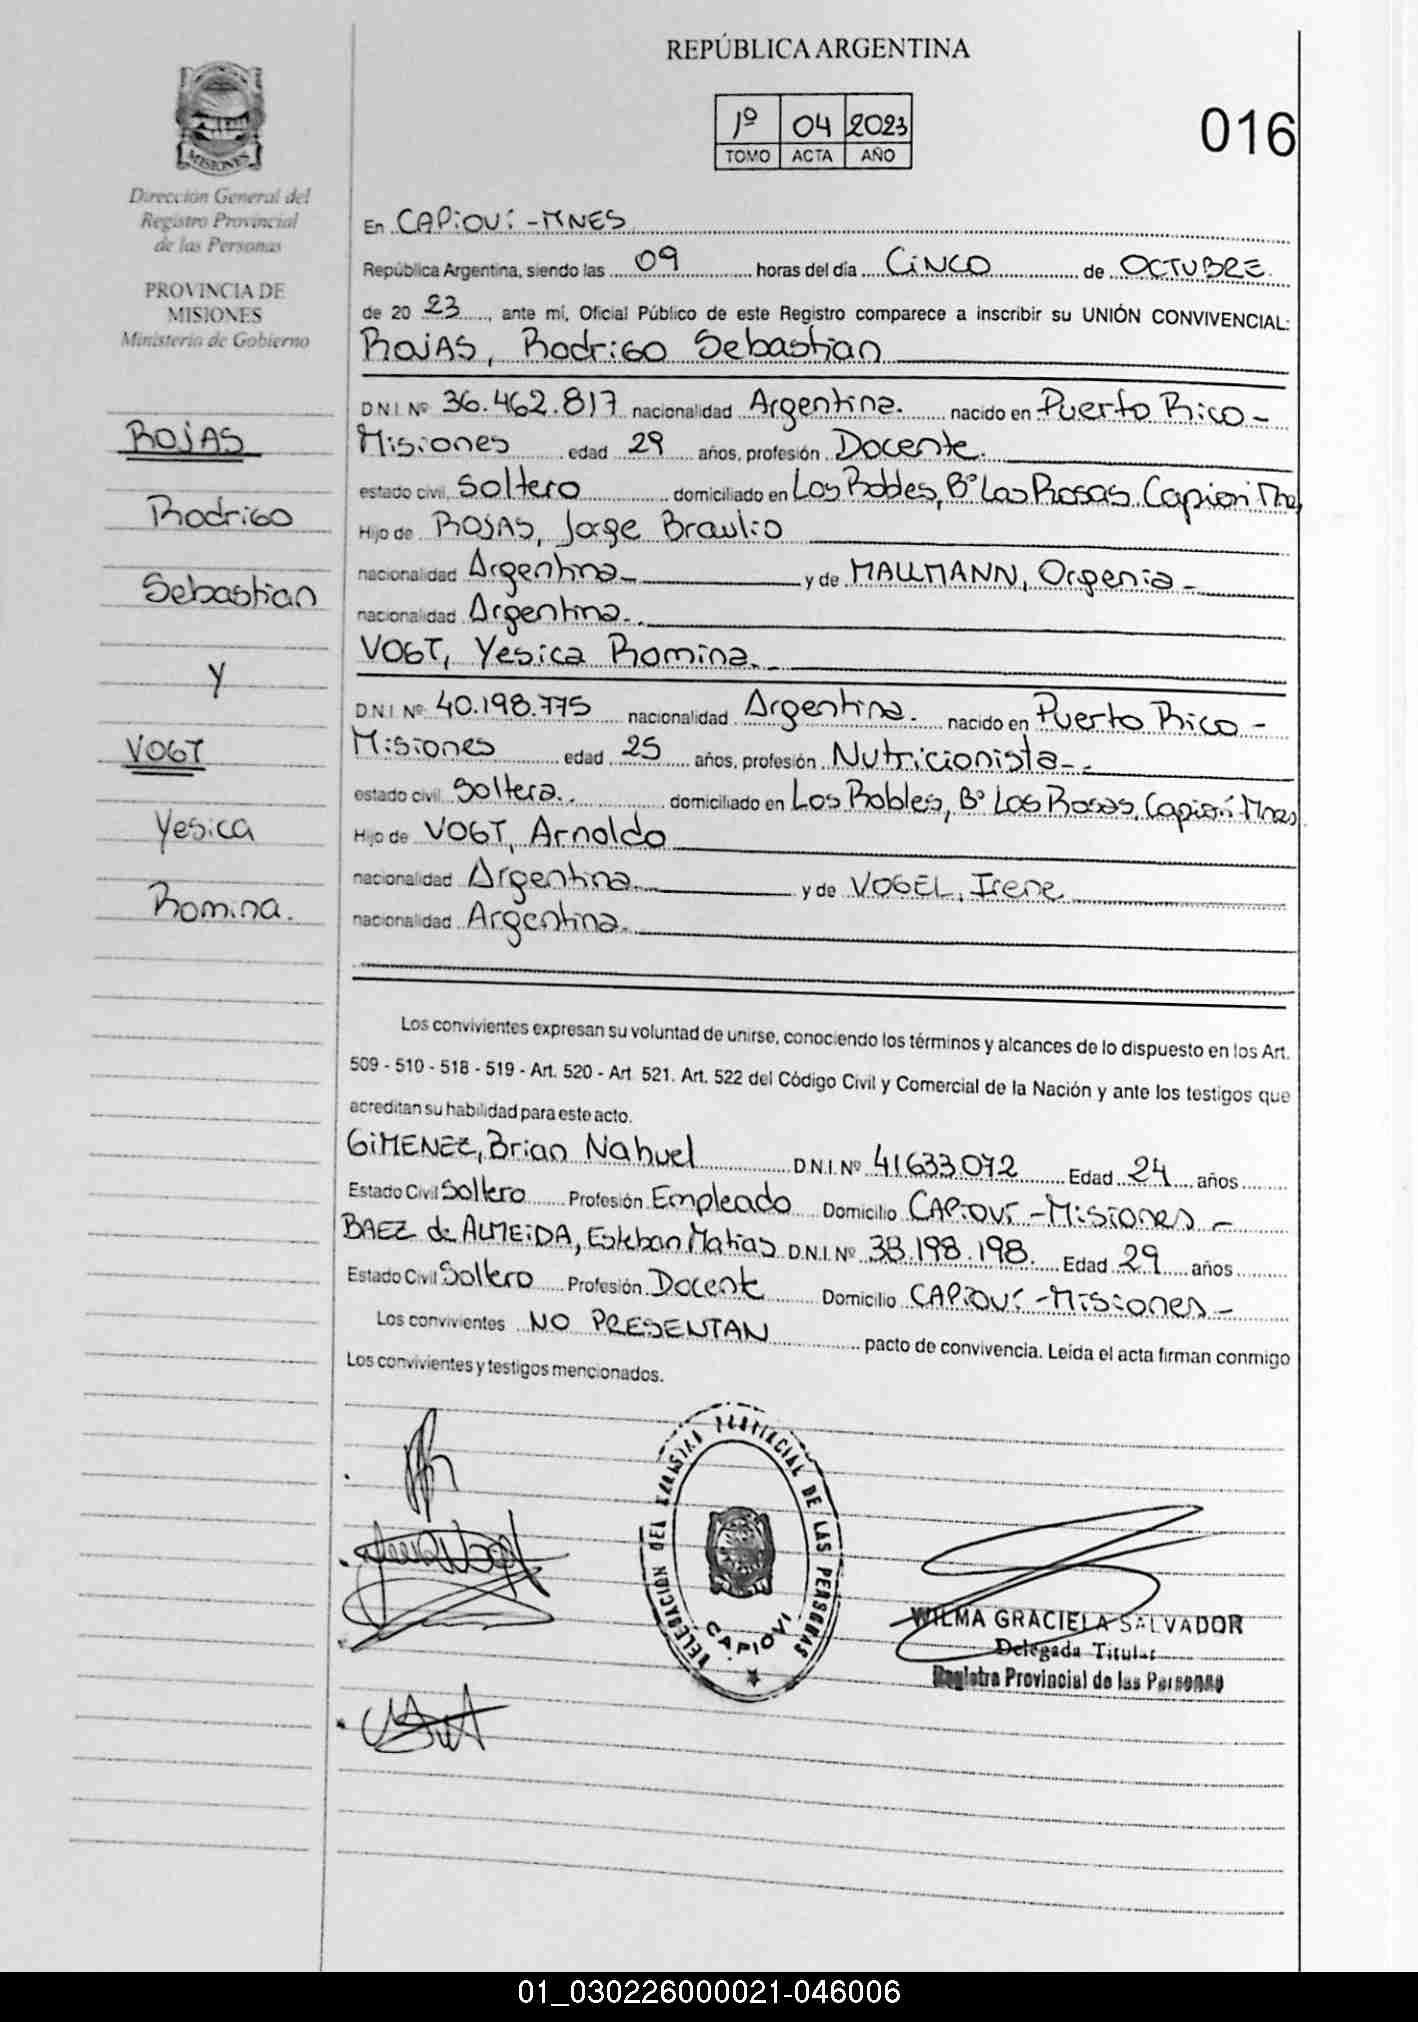 REPÚBLICA ARGENTINA
1º 04 2023
TOMO ACTA AÑO
016
MISIONES
Dirección General del
Registro Provincial
de las Personas
PROVINCIA DE
MISIONES
Ministerio de Gobierno
ROJAS
Rodrigo
Sebastian
y
VOGT
Yesica
Romina.
En CAPIOVÍ - MNES
República Argentina, siendo las 09 horas del día CINCO de OCTUBRE.
de 20 23, ante mí, Oficial Público de este Registro comparece a inscribir su UNIÓN CONVIVENCIAL:
ROJAS, Rodrigo Sebastian
D.N.I. Nº 36.462.817 nacionalidad Argentina. nacido en Puerto Rico -
Misiones edad 29 años, profesión Docente.
estado civil Soltero domiciliado en Los Robles, Bº Las Rosas, Capioví Mnes
Hijo de ROJAS, Jorge Braulio
nacionalidad Argentina y de MALLMANN, Orgenia -
nacionalidad Argentina.
VOGT, Yesica Romina.
D.N.I. Nº 40.198.775 nacionalidad Argentina. nacido en Puerto Rico -
Misiones edad 25 años, profesión Nutricionista -
estado civil Soltera. domiciliado en Los Robles, Bº Las Rosas, Capioví Mnes
Hijo de VOGT, Arnoldo
nacionalidad Argentina y de VOGEL, Irene
nacionalidad Argentina.
Los convivientes expresan su voluntad de unirse, conociendo los términos y alcances de lo dispuesto en los Art.
509 - 510 - 518 - 519 - Art. 520 - Art. 521. Art. 522 del Código Civil y Comercial de la Nación y ante los testigos que
acreditan su habilidad para este acto.
GIMENEZ, Brian Nahuel D.N.I. Nº 41633.072 Edad 24 años
Estado Civil Soltero Profesión Empleado Domicilio CAPIOVÍ - Misiones -
BAEZ de ALMEIDA, Esteban Matias D.N.I. Nº 38.198.198. Edad 29 años
Estado Civil Soltero Profesión Docente Domicilio CAPIOVÍ - Misiones -
Los convivientes NO PRESENTAN pacto de convivencia. Leída el acta firman conmigo
Los convivientes y testigos mencionados.
DELEGACION DEL REGISTRO PROVINCIAL DE LAS PERSONAS
CAPIOVI
WILMA GRACIELA SALVADOR
Delegada Titular
Registro Provincial de las Personas
01_030226000021-046006